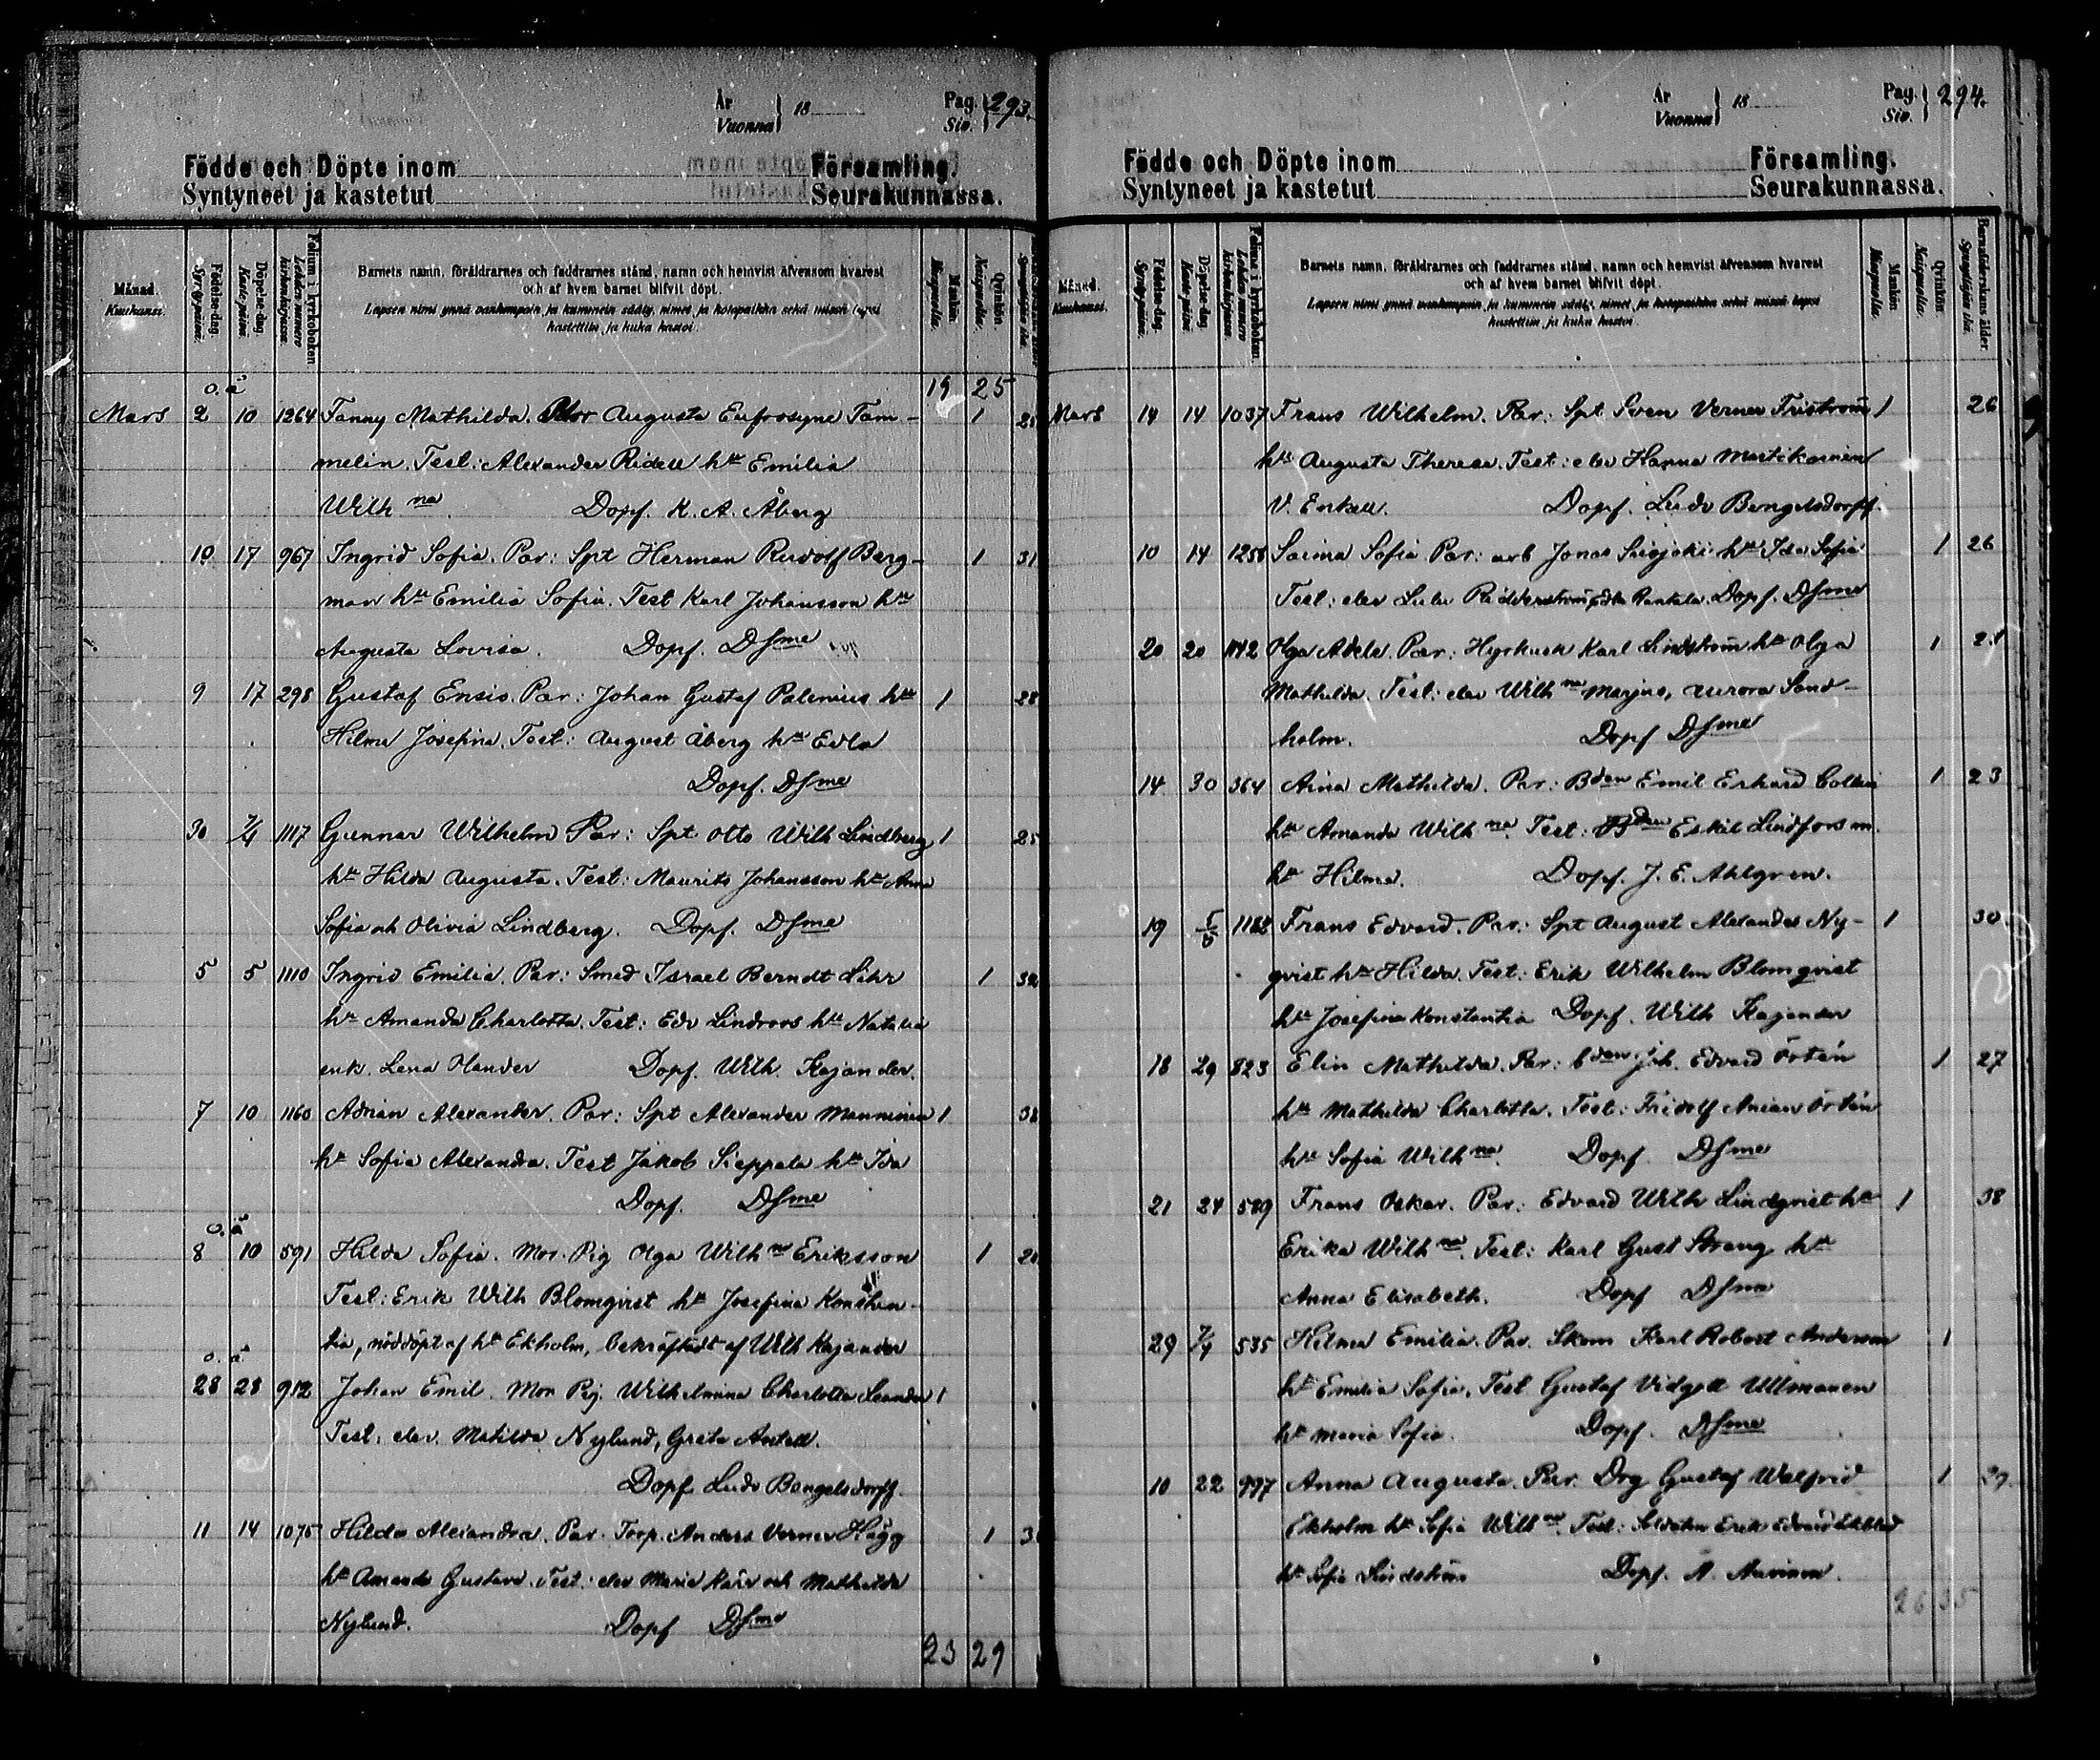 År
Vuonna } 18
Pag.
Siv. } 293.
Födde och Döpte inom Församling.
Syntyneet ja kastetut Seurakunnassa.
Månad.
Kuukausi.
Födelse-dag.
Syntypäivä.
Döpelse-dag.
Kastepäivä.
Folium i kyrkoboken.
Lehden numero kirkonkirjassa.
Barnets namn, föräldrarnes och faddrarnes stånd, namn och hemvist äfvensom hvarest
och af hvem barnet blifvit döpt.
Lapsen nimi ynnä vanhempain ja kummein sääty, nimet ja kotopaikka sekä missä lapsi
kastettiin ja kuka kastoi.
Mankön.
Miespuolia.
Qvinkön.
Naispuolia.
19 25
o. ä
Mars 2 10 1264 Fanny Mathilda. Mor Augusta Eufrosyne Tam- 1
melin. Test: Alexander Ridell htt Emilia
Wilh na. Dopf. K. A. Åberg
10 17 967 Ingrid Sofia. Par: Spt Herman Rudolf Berg- 1 31
man htt Emilia Sofia. Test Karl Johansson htt
Augusta Lovisa. Dopf. DSme
9 17 298 Gustaf Ensio. Par: Johan Gustaf Palenius htt 1 28
Hilma Josefina. Test: August Åberg htt Edla
Dopf. DSme
30 7/4 1117 Gunnar Wilhelm Par: Spt Otto Wilh Lindberg 1 25
htt Hilda Augusta. Test: Maurits Johansson htt Anna
Sofia och Olivia Lindberg. Dopf. DSme
5 5 1110 Ingrid Emilia. Par: Smed Israel Berndt Lihr 1
htt Amanda Charlotta. Test: Edv Lindroos htt Natalia
enk. Lena Olander Dopf. Wilh. Kajander.
7 10 1160 Adrian Alexander. Par: Spt Alexander Manninen 1 38
htt Sofia Alexandra. Test Jakob Sieppala htt Ida
Dopf. DSme
o. ä
8 10 591 Hilda Sofia. Mor. Pig Olga Wilh na Eriksson 1
Test: Erik Wilh Blomqvist htt Josefina Konstan-
tia, nöddöpt af htt Ekholm, bekräftadt af Wilh Kajander
o. ä
28 28 912 Johan Emil. Mor Pig. Wilhelmina Charlotta Leander 1
Test: elev. Matilda Nylund, Greta Antell.
Dopf Ludv Bengelsdorff.
11 14 1075 Hilda Alexandra. Par. Torp. Anders Verner Hägg 1
htt Amanda Gustava. Test: elev Maria Karr och Mathilda
Nylund. Dopf DSme
23 29
År
Vuonna } 18
Pag.
Siv. } 294.
Födde och Döpte inom Församling.
Syntyneet ja kastetut Seurakunnassa.
Månad.
Kuukausi.
Födelse-dag.
Syntypäivä.
Döpelse-dag.
Kastepäivä.
Folium i kyrkoboken.
Lehden numero kirkonkirjassa.
Barnets namn, föräldrarnes och faddrarnes stånd, namn och hemvist äfvensom hvarest
och af hvem barnet blifvit döpt.
Lapsen nimi ynnä vanhempain ja kummein sääty, nimet ja kotopaikka sekä missä lapsi
kastettiin ja kuka kastoi.
Mankön.
Miespuolia.
Qvinkön.
Naispuolia.
Barnaföderskans ålder.
Synnyttäjän ikä.
Mars 14 14 1037 Frans Wilhelm. Par: Spt Sven Verner Friström 1 26
htt Augusta Theresa. Test: elev Hanna Martikainen
V. Enkell. Dopf. Ludv Bengelsdorff.
10 14 1258 Saima Sofia Par: arb Jonas Saisjoki htt Ida Sofia 1 26
Test: elev Lulu Ridderström, Edla Rantala. Dopf. DSme
20 20 1142 Olga Adele. Par: Hyrkusk Karl Lindström htt Olga 1
Mathilda. Test: elev Wilh na Marjus, Aurora Sand-
holm. Dopf DSme
14 30 364 Aina Mathilda. Par: Bden Emil Erhard Collin 1 23
htt Amanda Wilh na. Test: Bden Eskil Lindfors m.
htt Hilma. Dopf. J. E. Ahlgren.
19 5/5 1182 Frans Edvard. Par: Spt August Alexander Ny- 1 30
qvist htt Hilda. Test: Erik Wilhelm Blomqvist
htt Josefina Konstantia Dopf. Wilh Kajander
18 29 823 Elin Mathilda. Par: bden Joh. Edvard Örtén 1 27
htt Mathilda Charlotta. Test: Fridolf Anian Örtén
htt Sofia Wilh na. Dopf. DSme
21 24 589 Frans Oskar. Par: Edvard Wilh Lindqvist htt 1 38
Erika Wilh na. Test: Karl Gust Strang htt
Anna Elisabeth. Dopf DSme
29 7/4 535 Hilma Emilia. Par. Skom Karl Robert Anderson 1
htt Emilia Sofia. Test Gustaf Vidgott Ullmanen
htt Maria Sofia. Dopf. DSme
10 22 997 Anna Augusta. Par. Drg Gustaf Walfrid 1 29
Ekholm htt Sofia Wilh na. Test: Soldaten Erik Edvard Ekblad
htt Sofia Lindström Dopf. A. Auvinen.
26 35